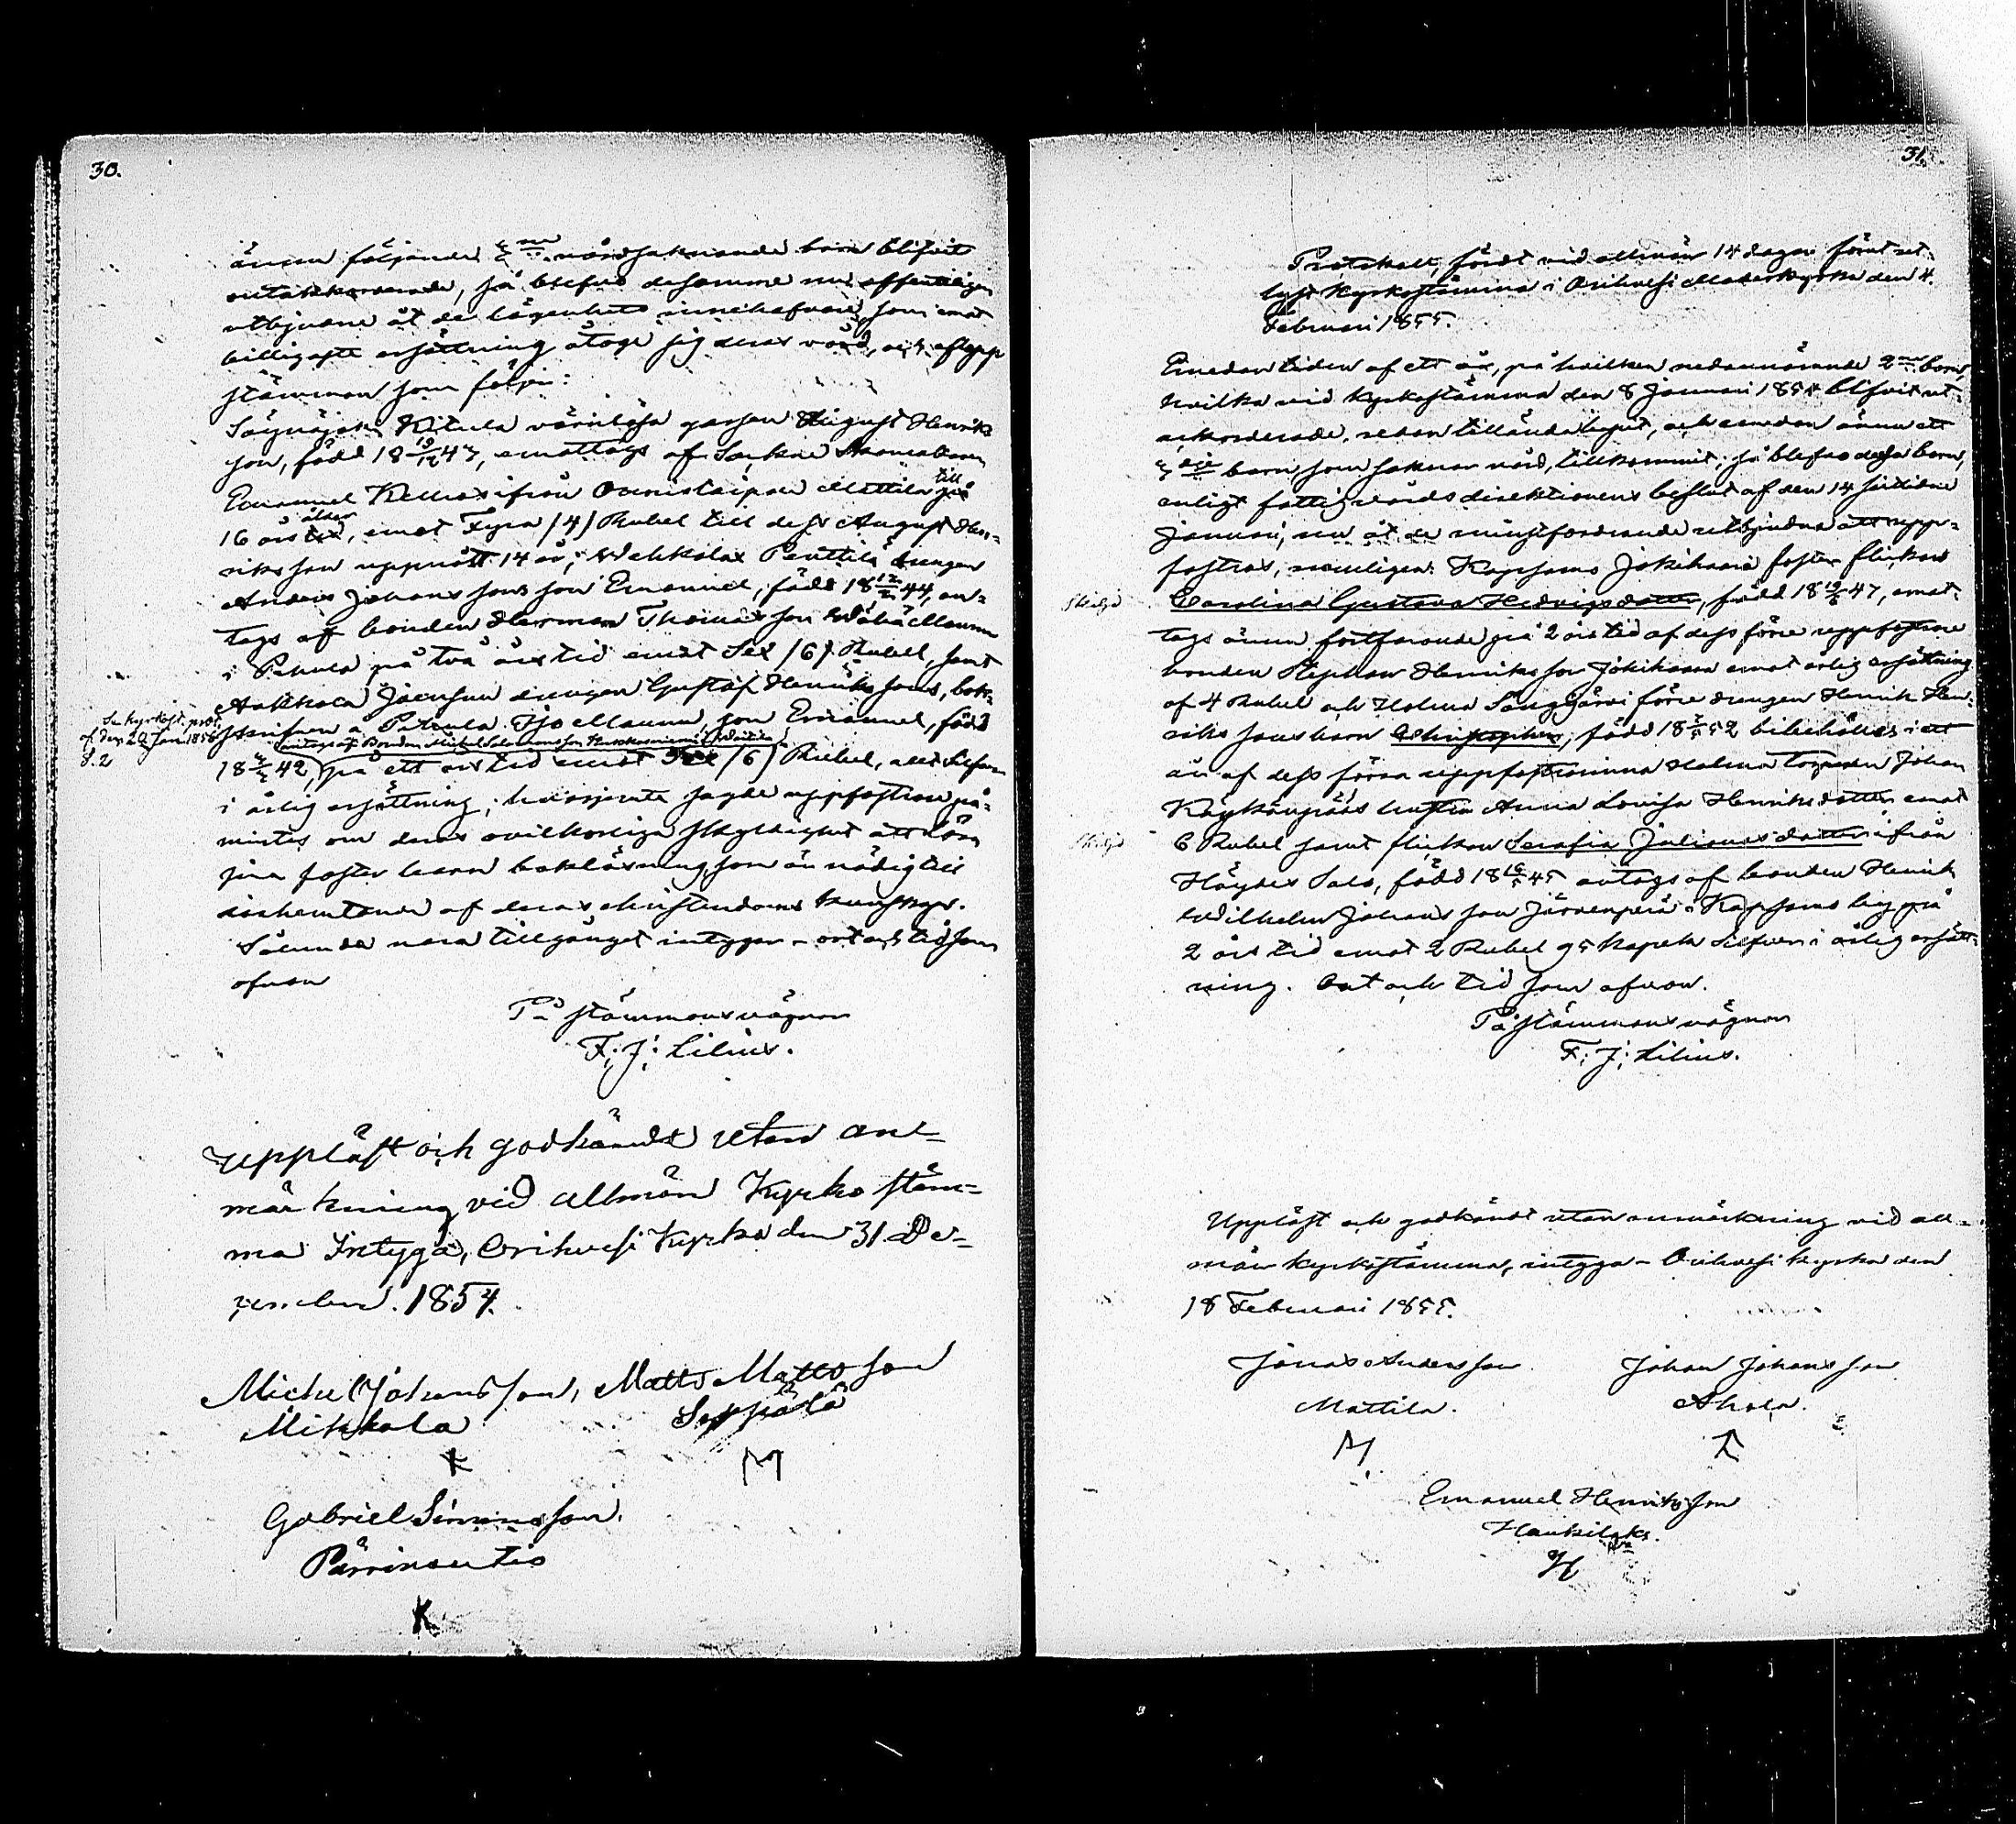 30.
ännu följande vårdsaknande barn blifvit
outakkorderade, så blefvo desamme nu offentligen
utbjudne åt de lägenhets innehafvare, som emot
billigaste ersättning åtoge sig deras vård, och aflopp
stämman som följer:
Säynäjoki Kitula värnlösa gossen August Henriks
son, född 18 19/12 47, emottogs af
Emanuel ifrån Mattila till
16 års ålder, emot Fyra /4/ Rubel till dess August Hen-
riksson uppnått 14 år; Wehkalax Penttilä drängen
Anders Johanssons son Emanuel, född 18 12/2 44, an-
togs af bonden Herman Thomasson
i Pehula på två års tid emot Sex /6/ Rubel, samt
drängen Gustaf Henrikssons, bok-
skrifven å son Emanuel, född
Se Kyrkost. prot.
af den 20 Jan. 1856
§.2
antogs af Bonden Michel Salomonsson
18 42, på ett års tid emot Sex /6/ Rubel, allt Silfver
i årlig ersättning; hvarjemte sagde uppfostrare på-
mintes om deras ovilkorliga skyldighet att
sina foster barn bokläsning, som är nödig till
inhemtande af deras christendoms kunskap.
Sålunda vara tillgånget intygar - ort och tid som
ofvan
På stämmans vägnar
F: J: Lilius.
Uppläst och godkändt utan an-
märkning vid allmän Kyrkostäm-
ma Intyga, Orihvesi Kyrka den 31 De-
zember. 1854.
Michel Johansson, Matts Mattsson
Mikkola Seppälä
K M
Gabriel Simonsson.
Pärrinsuutio
K
31.
Protokoll, fördt vid allmän 14 dagar förut ut-
lyst Kyrkostämma i Orihvesi Moderkyrka den 4.
Februari 1855.
Emedan tiden af ett år, på hvilken nedannämnde 2ne barn,
hvilka vid Kyrkostämma den 8 Januari 1854 blifvit ut-
ackorderade, redan tilländalupit, och emedan ännu ett
barn som saknar vård, tillkommit; så blefvo dessa barn,
enligt fattigvårds direktionens beslut af den 14 sistledne
Januari, nu åt de minstfordrande utbjudna att upp-
fostras, nemligen: Kapsams Jokihaara foster flickan
Skiljd
Carolina Gustava Hedvigsdotter, född 18 19/6 47, emot-
togs ännu fortfarande på 2 års tid af dess förre uppfostrare
bonden Stephan Henriksson Jokihaara emot årlig ersättning
af 4 Rubel och Holma Längjärvi förre drängen Henrik Hen-
riks sons barn Christopher, född 18 52 bibehölles i ett
år af dess förra uppfostrarinna Holma torparen Johan
hustru Anna Lovisa Henriksdotter emot
Skiljd
6 Rubel samt flickan Serafia Julianasdotter ifrån
Höydes Salo, född 18 16/5 45 antogs af bonden Henrik
Wilhelm Johansson Järvenpää i Kapsams by på
2 års tid emot 2 Rubel 95 kopek Silfver i årlig ersätt-
ning. Ort och tid som ofvan.
På stämmans vägnar
F: J: Lilius.
Uppläst och godkändt utan anmärkning vid all-
män kyrkostämma, intyga - Orihvesi kyrka den
18 Februari 1855.
Jonas Andersson Johan Johansson
Mattila. Ahola.
M
Emanuel Henriksson
H